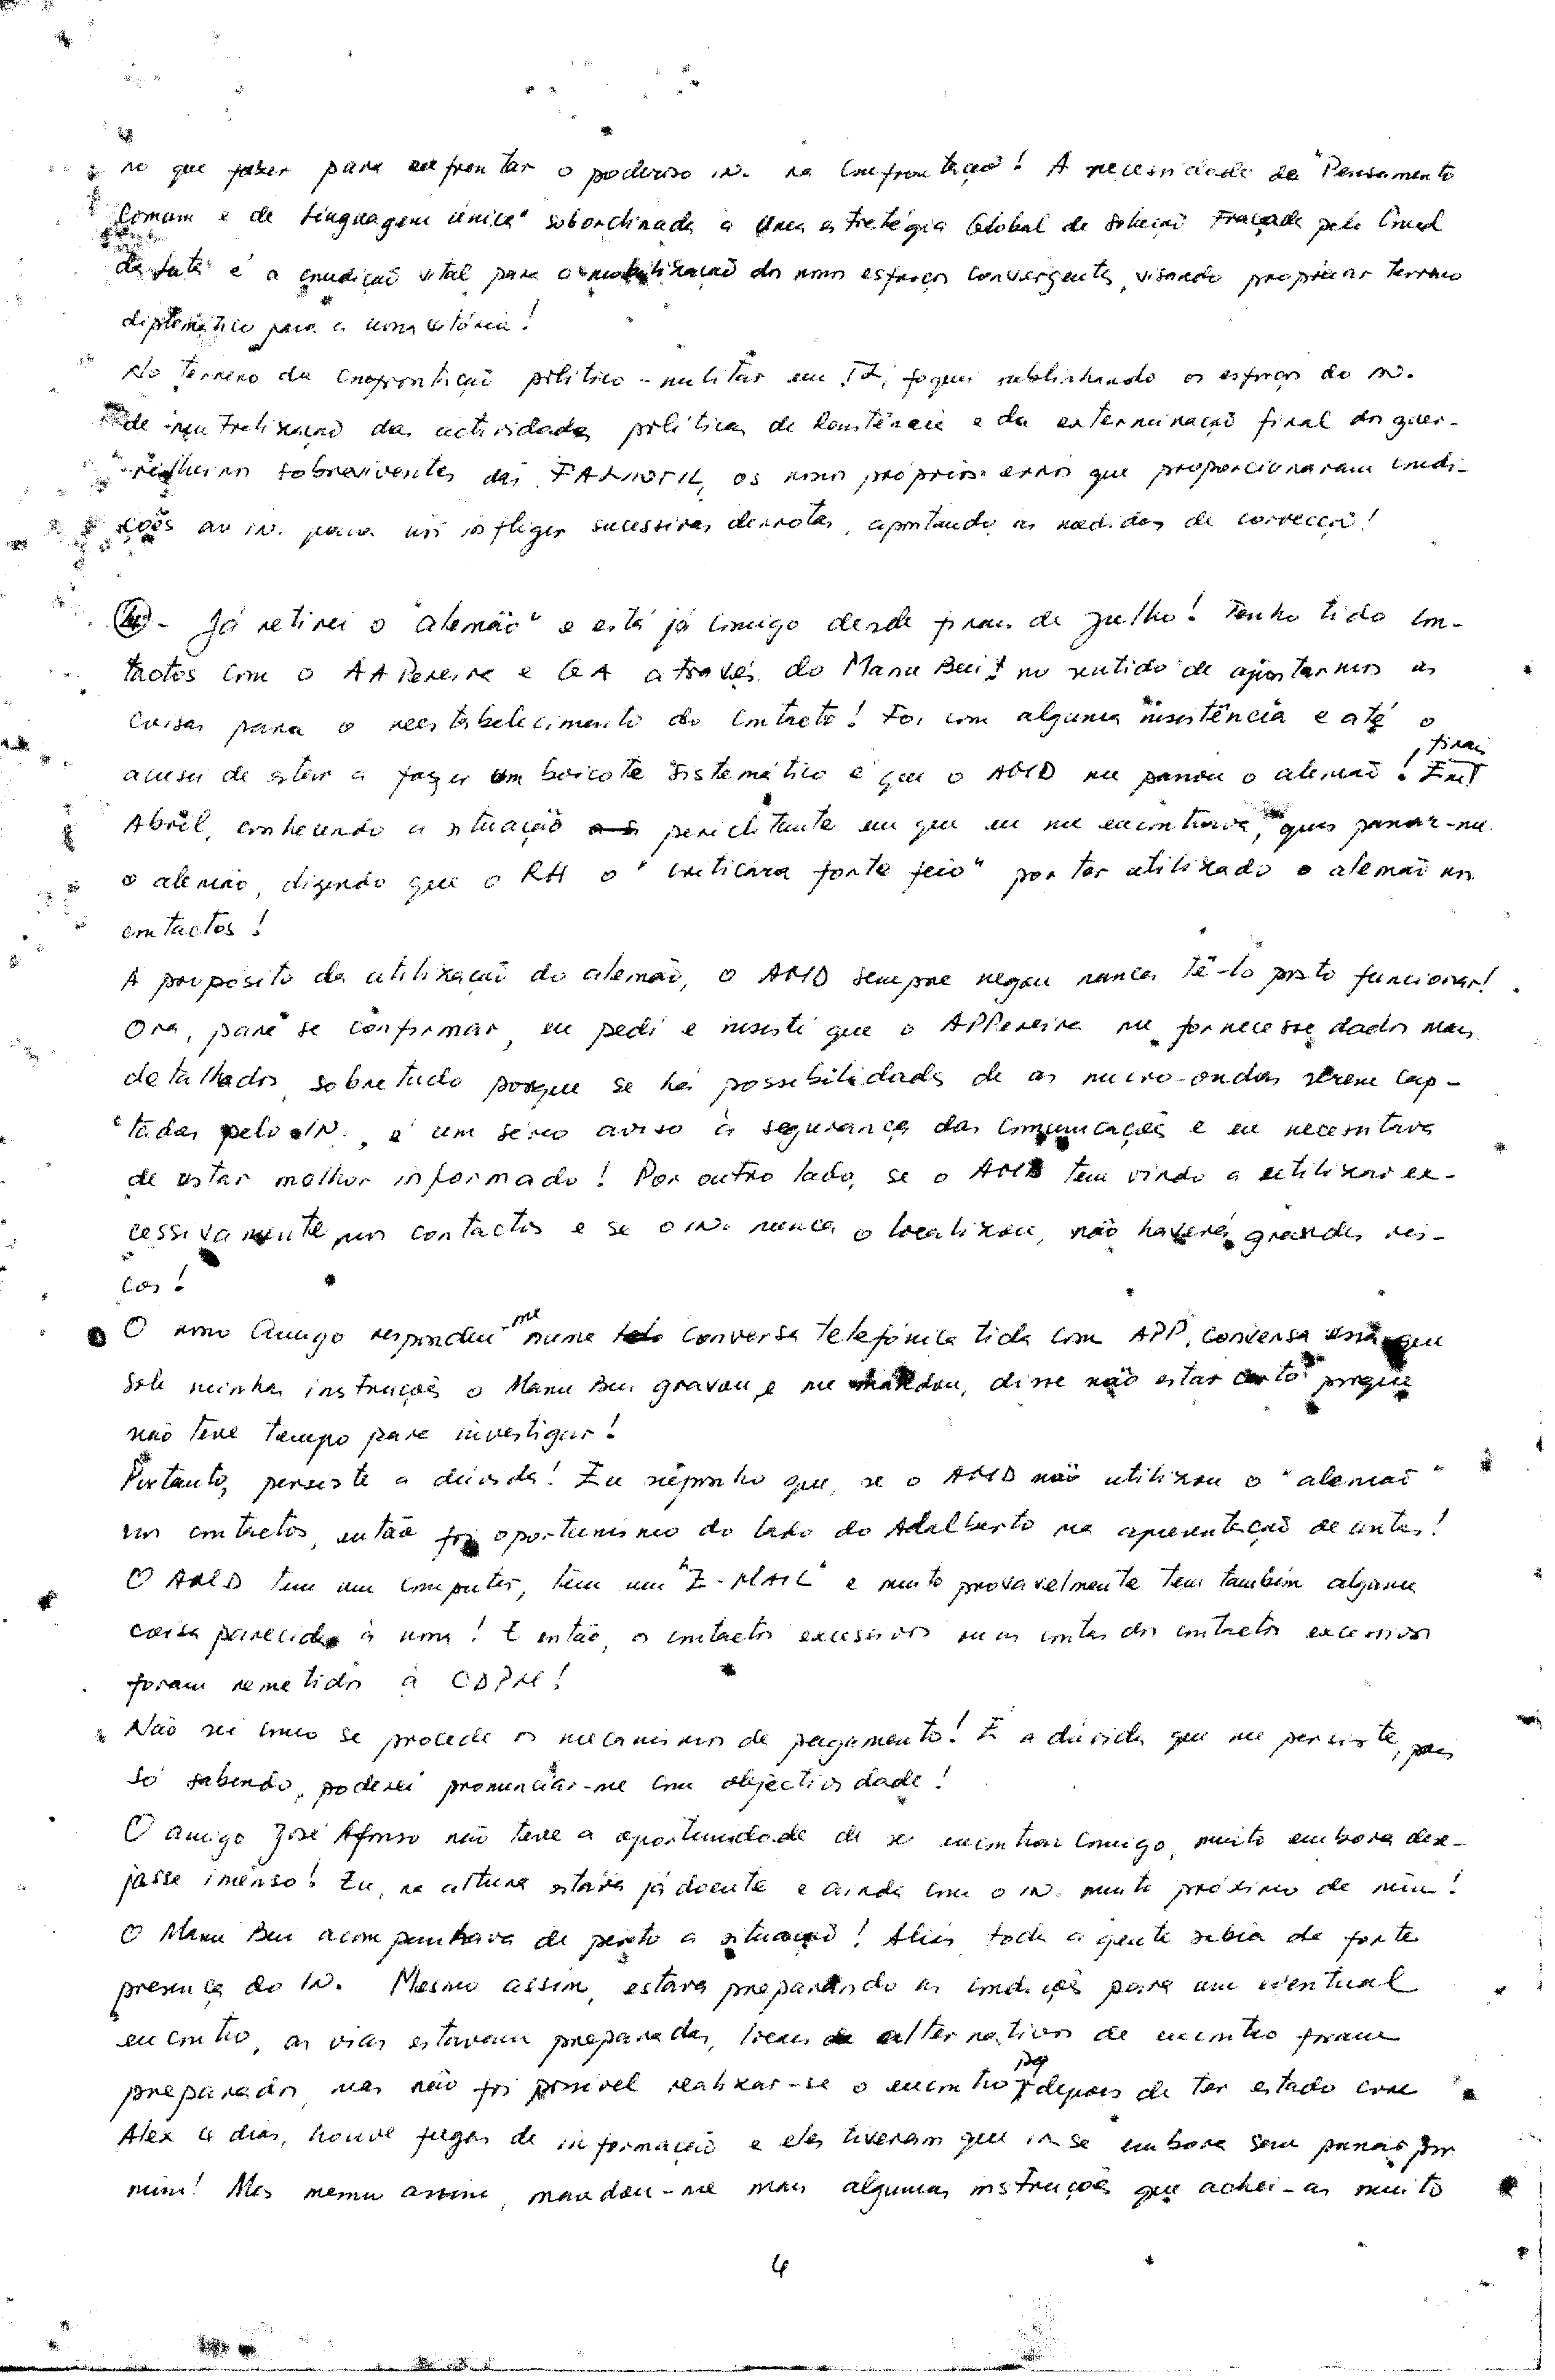 no que fazer para enfrentar o poderoso in. na Confrontação! A necessidade de "Pensamento
Comum e de Linguagem única" subordinada a uma estratégia Global de Solução traçada pelo Cmd
da Luta é a condição vital para a mobilização dos nossos esforços convergentes, visando propiciar terreno
diplomático para a nossa vitória!
No terreno da Confrontação político-militar em TL, foquei sublinhando os esforços do in.
de neutralização das actividades políticas de Resistência e da exterminação final dos guer-
rilheiros sobreviventes das FALINTIL, os nossos próprios erros que proporcionaram condi-
ções ao in. para nos infligir sucessivas derrotas, apontando as medidas de correcção!
- Já retirei o "alemão" e está já comigo desde finais de Julho! Tenho tido con-
tactos com o AAPereira e GA através do Manu Bui no sentido de ajustarmos as
coisas para o reestabelecimento do contacto! Foi com alguma insistência e até o
acusei de estar a fazer um boicote sistemático é que o AMD me passou o alemão! finais
Abril, conhecendo a situação periclitante em que eu me encontrava, quis passar-me
o alemão, dizendo que o RH o "criticara forte feio" por ter utilizado o alemão nos
contactos!
A propósito da utilização do alemão, o AMD sempre negou nunca tê-lo posto funcionar!
Ora, para se confirmar, eu pedi e insisti que o APPereira me fornecesse dados mais
detalhados, sobretudo porque se há possibilidade de as micro-ondas serem cap-
tadas pelo IN., é um sério aviso à segurança das comunicações e eu necessitava
de estar melhor informado! Por outro lado, se o AMD tem vindo a utilizar ex-
cessivamente nos contactos e se o in. nunca o localizou, não haverá grandes ris-
cos!
O nosso Amigo respondeu-me numa conversa telefónica tida com APP, conversa essa que
sob minhas instruções o Manu Bui gravou e me mandou, disse não estar certo porque
não teve tempo para investigar!
Portanto, persiste a dúvida! Eu suponho que, se o AMD não utilizou o "alemão"
nos contactos, então foi oportunismo do lado do Adalberto na apresentação de contas!
O AMD tem um computer, tem um "E-MAIL" e muito provavelmente tem também alguma
coisa parecida à nossa! E então, os contactos excessivos ou as contas dos contactos excessivos
foram remetidos à CDPM!
Não sei como se procede os mecanismos de pagamento! É a dúvida que me persiste, pois
só sabendo, poderei pronunciar-me com objectividade!
O amigo José Afonso não teve a oportunidade de se encontrar comigo, muito embora dese-
jasse imenso! Eu, na altura estava já doente e ainda com o in. muito próximo de mim!
O Manu Bui acompanhava de perto a situação! Aliás toda a gente sabia da forte
presença do IN. Mesmo assim, estava preparando as condições para um eventual
encontro, as vias estavam preparadas, locais alternativos de encontro foram
preparados mas não foi possível realizar-se o encontro pq depois de ter estado com
Alex 4 dias, houve fugas de informação e eles tiveram que ir-se embora sem passar por
mim! Mas mesmo assim, mandou-me mais algumas instruções que achei-as muito
4